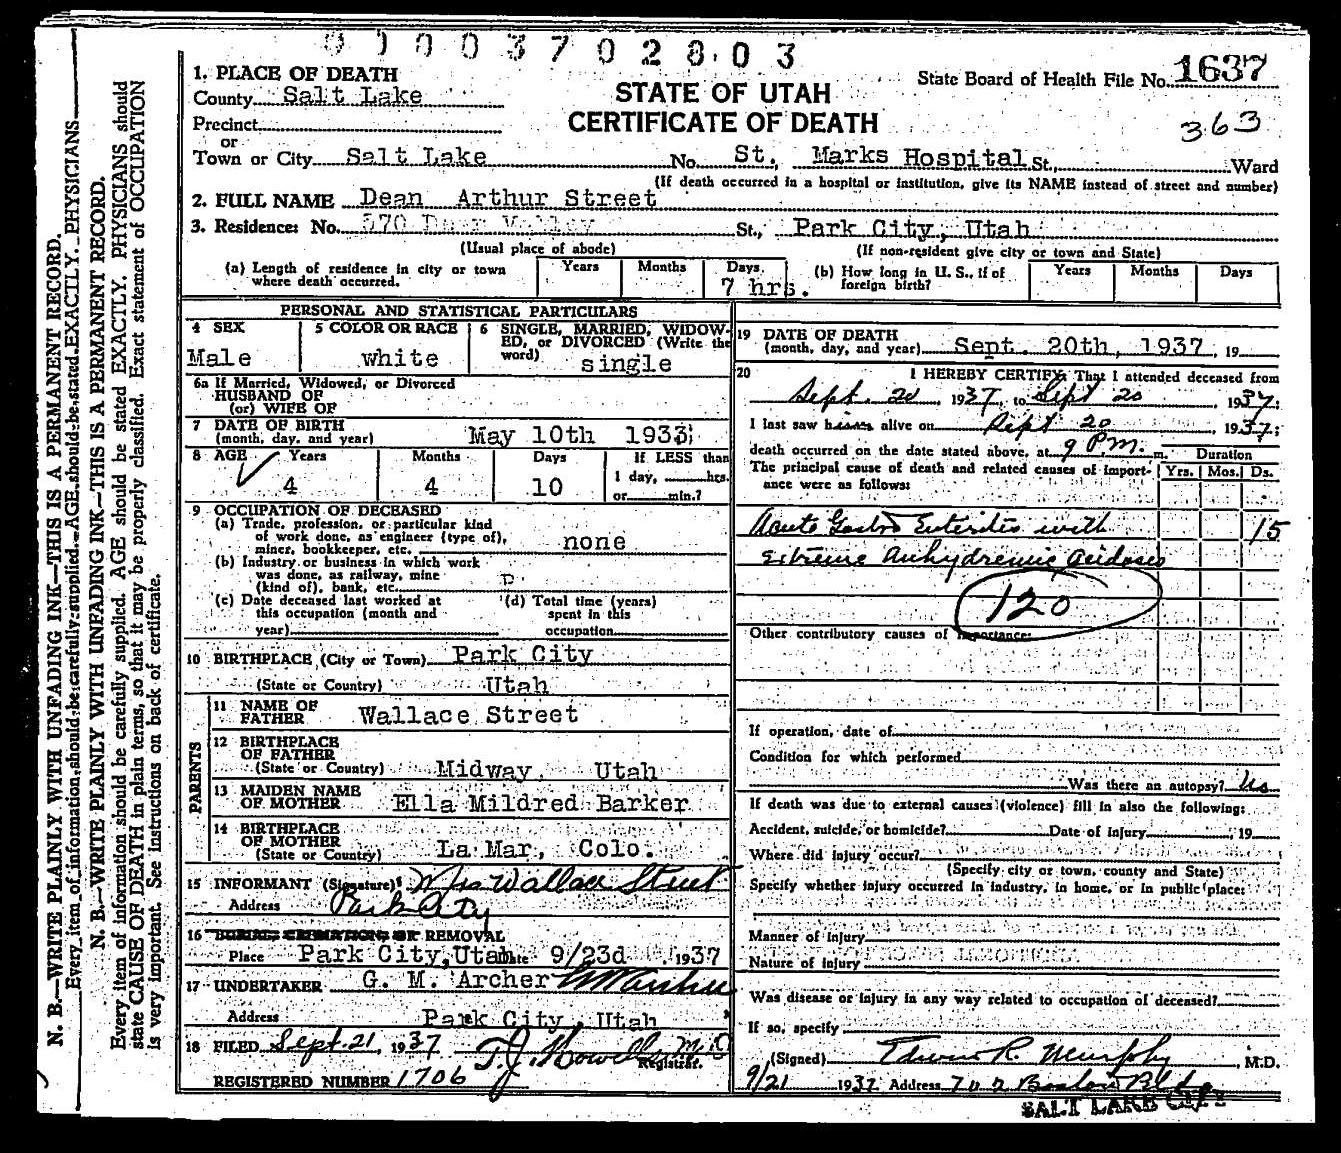 0 1 0 0 3 7 0 2 8 0 3
1. PLACE OF DEATH
County Salt Lake
STATE OF UTAH
CERTIFICATE OF DEATH
State Board of Health File No. 1637
363
Precinct
or
Town or City Salt Lake No. St. Marks Hospital St., Ward
(If death occurred in a hospital or institution, give its NAME instead of street and number)
2. FULL NAME Dean Arthur Street
3. Residence: No. 570 Deer Valley St., Park City, Utah
(Usual place of abode) (If non-resident give city or town and State)
(a) Length of residence in city or town where death occurred. Years Months Days 7 hrs.
(b) How long in U. S., if of foreign birth? Years Months Days
PERSONAL AND STATISTICAL PARTICULARS
4 SEX Male
5 COLOR OR RACE white
6 SINGLE, MARRIED, WIDOW-
ED, or DIVORCED (Write the
word) single
6a If Married, Widowed, or Divorced
HUSBAND OF
(or) WIFE OF
7 DATE OF BIRTH
(month, day, and year) May 10th 1933
8 AGE Years 4 Months 4 Days 10
If LESS than
1 day, hrs.
or min.?
9 OCCUPATION OF DECEASED
(a) Trade, profession, or particular kind
of work done, as engineer (type of),
miner, bookkeeper, etc. none
(b) Industry or business in which work
was done, as railway, mine
(kind of), bank, etc.
(c) Date deceased last worked at
this occupation (month and
year)
(d) Total time (years)
spent in this
occupation
10 BIRTHPLACE (City or Town) Park City
(State or Country) Utah
PARENTS
11 NAME OF
FATHER Wallace Street
12 BIRTHPLACE
OF FATHER
(State or Country) Midway, Utah
13 MAIDEN NAME
OF MOTHER Ella Mildred Barker
14 BIRTHPLACE
OF MOTHER
(State or Country) La Mar, Colo.
15 INFORMANT (Signature) Mrs Wallace Street
Address Park City
16 BURIAL CREMATION OR REMOVAL
Place Park City, Utah Date 9/23d 1937
17 UNDERTAKER G. M. Archer
Address Park City, Utah
18 FILED Sept. 21, 1937 T. J. Howells M.D.
Registrar.
REGISTERED NUMBER 1706
19 DATE OF DEATH
(month, day, and year) Sept. 20th, 1937, 19
20 I HEREBY CERTIFY That I attended deceased from
Sept. 20, 1937, to Sept 20, 1937;
I last saw him alive on Sept 20, 1937;
death occurred on the date stated above, at 9 P.M. m. Duration
The principal cause of death and related causes of import-
ance were as follows: Yrs. Mos. Ds.
Acute Gastro Enteritis with 15
extreme anhydremic acidosis
120
Other contributory causes of importance:
If operation, date of
Condition for which performed
Was there an autopsy? No
If death was due to external causes (violence) fill in also the following:
Accident, suicide, or homicide? Date of injury, 19
Where did injury occur?
(Specify city or town, county and State)
Specify whether injury occurred in industry, in home, or in public place:
Manner of injury
Nature of injury
Was disease or injury in any way related to occupation of deceased?
If so, specify
(Signed) Edwin R. Murphy, M.D.
9/21 1937 Address 702 Boston Bldg
SALT LAKE CITY
N. B.—WRITE PLAINLY WITH UNFADING INK—THIS IS A PERMANENT RECORD.
Every item of information should be carefully supplied. AGE should be stated EXACTLY. PHYSICIANS
N. B.—WRITE PLAINLY WITH UNFADING INK—THIS IS A PERMANENT RECORD.
Every item of information should be carefully supplied. AGE should be stated EXACTLY. PHYSICIANS should
state CAUSE OF DEATH in plain terms, so that it may be properly classified. Exact statement of OCCUPATION
is very important. See instructions on back of certificate.